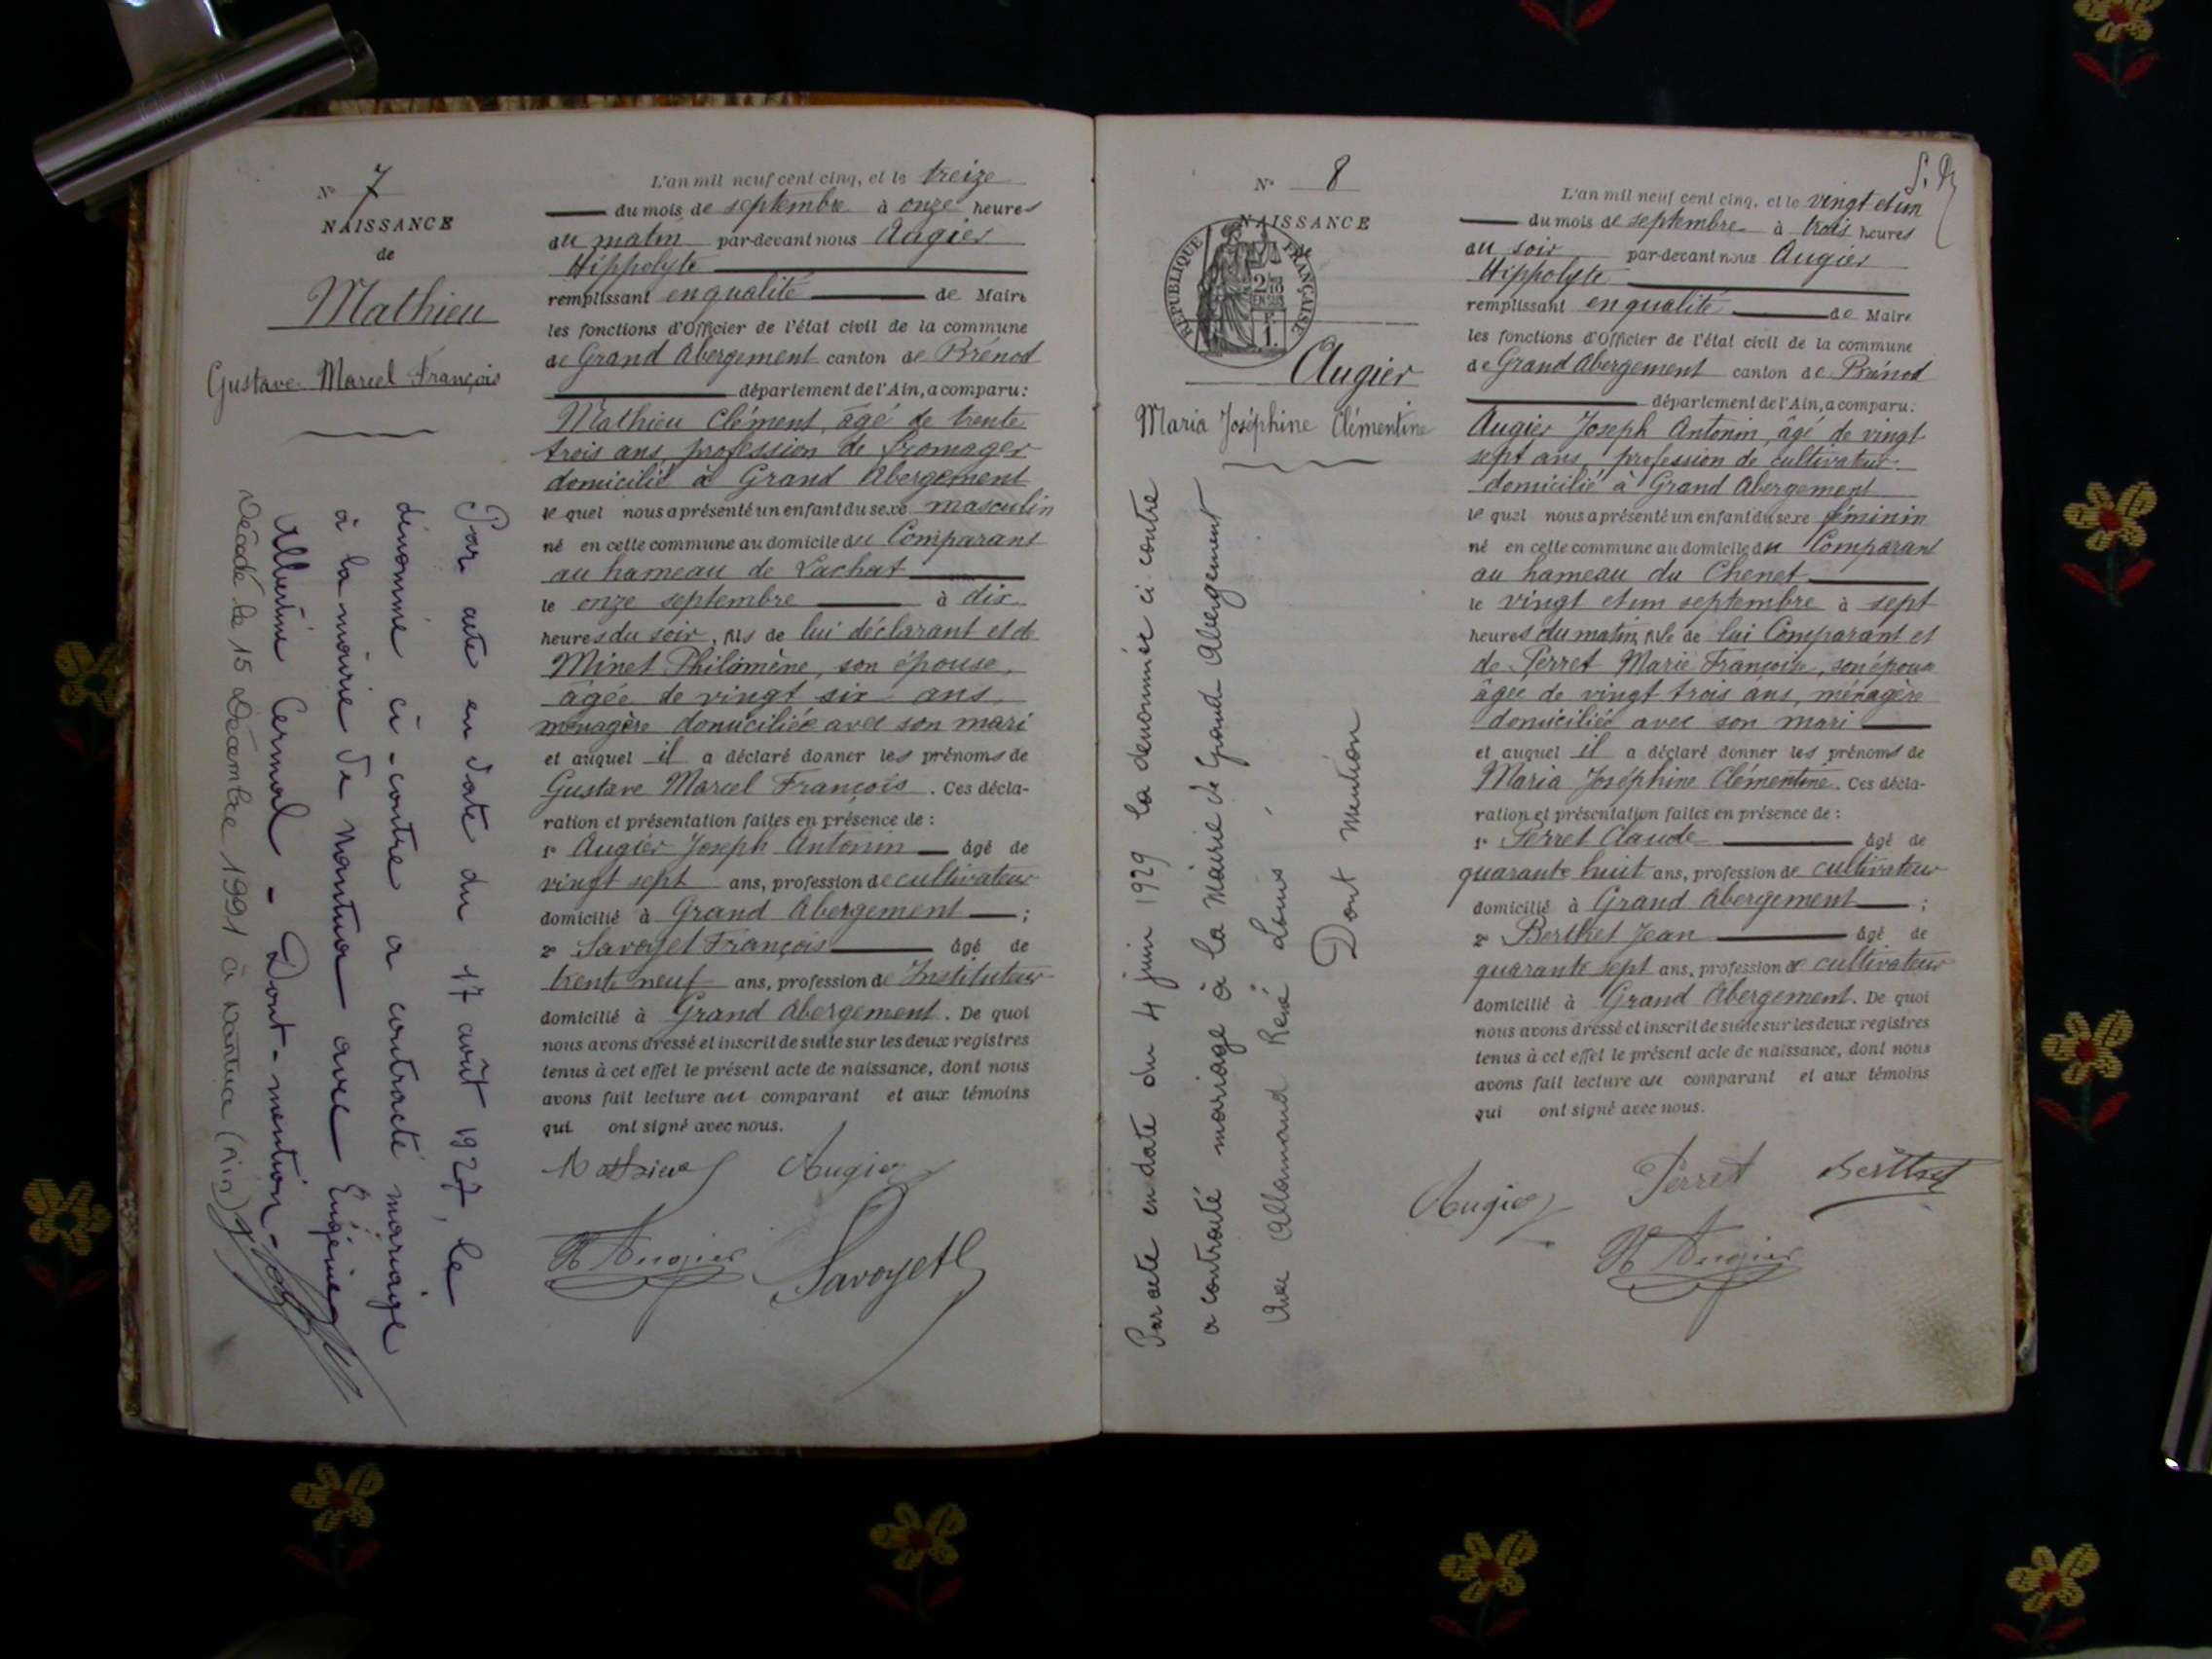 N° 7
NAISSANCE
de
Mathieu
Gustave Marcel François
L'an mil neuf cent cinq, et le treize
du mois de septembre à onze heures
du matin par-devant nous Augier
Hippolyte
remplissant en qualité de Maire
les fonctions d'Officier de l'état civil de la commune
de Grand Abergement canton de Brénod
département de l'Ain, a comparu:
Mathieu Clément, âgé de trente
trois ans, profession de fromager
domicilié à Grand Abergement
le quel nous a présenté un enfant du sexe masculin
né en cette commune au domicile du Comparant
au hameau de Lachat
le onze septembre à dix
heures du soir, fils de lui déclarant et de
Minet Philomène, son épouse,
âgée de vingt six ans,
ménagère domiciliée avec son mari
et auquel il a déclaré donner les prénoms de
Gustave Marcel François. Ces décla-
ration et présentation faites en présence de :
1° Augier Joseph Antonin âgé de
vingt sept ans, profession de cultivateur
domicilié à Grand Abergement ;
2° Savoyet François âgé de
trente neuf ans, profession de Instituteur
domicilié à Grand Abergement. De quoi
nous avons dressé et inscrit de suite sur les deux registres
tenus à cet effet le présent acte de naissance, dont nous
avons fait lecture au comparant et aux témoins
qui ont signé avec nous.
Mathieu Augier
H Augier Savoyet
Par acte en date du 17 août 1927, le
dénommé ci-contre a contracté mariage
à la mairie de Nantua avec Eugénie
Albertine Cermal - Dont-mention-
Décédé le 15 Décembre 1991 à Nantua (Ain)
N° 8
NAISSANCE
de
RÉPUBLIQUE FRANÇAISE
2/10
EN SUS
1.
Augier
Maria Joséphine Clémentine
L'an mil neuf cent cinq, et le vingt et un
du mois de septembre à trois heures
du soir par-devant nous Augier
Hippolyte
remplissant en qualité de Maire
les fonctions d'Officier de l'état civil de la commune
de Grand Abergement canton de Brénod
département de l'Ain, a comparu:
Augier Joseph Antonin, âgé de vingt
sept ans, profession de cultivateur
domicilié à Grand Abergement
le quel nous a présenté un enfant du sexe féminin
né en cette commune au domicile du Comparant
au hameau du Chenet
le vingt et un septembre à sept
heures du matin, fille de lui Comparant et
de Perret Marie Françoise, son épouse
âgée de vingt trois ans, ménagère
domiciliée avec son mari
et auquel il a déclaré donner les prénoms de
Maria Joséphine Clémentine. Ces décla-
ration et présentation faites en présence de :
1° Perret Claude âgé de
quarante huit ans, profession de cultivateur
domicilié à Grand Abergement ;
2° Berthet Jean âgé de
quarante sept ans, profession de cultivateur
domicilié à Grand Abergement. De quoi
nous avons dressé et inscrit de suite sur les deux registres
tenus à cet effet le présent acte de naissance, dont nous
avons fait lecture au comparant et aux témoins
qui ont signé avec nous.
Augier Perret Berthet
H Augier
Par acte en date du 4 juin 1929 la dénommée ci contre
a contracté mariage à la Mairie de Grand Abergement
avec Allamand René Louis,
Dont mention